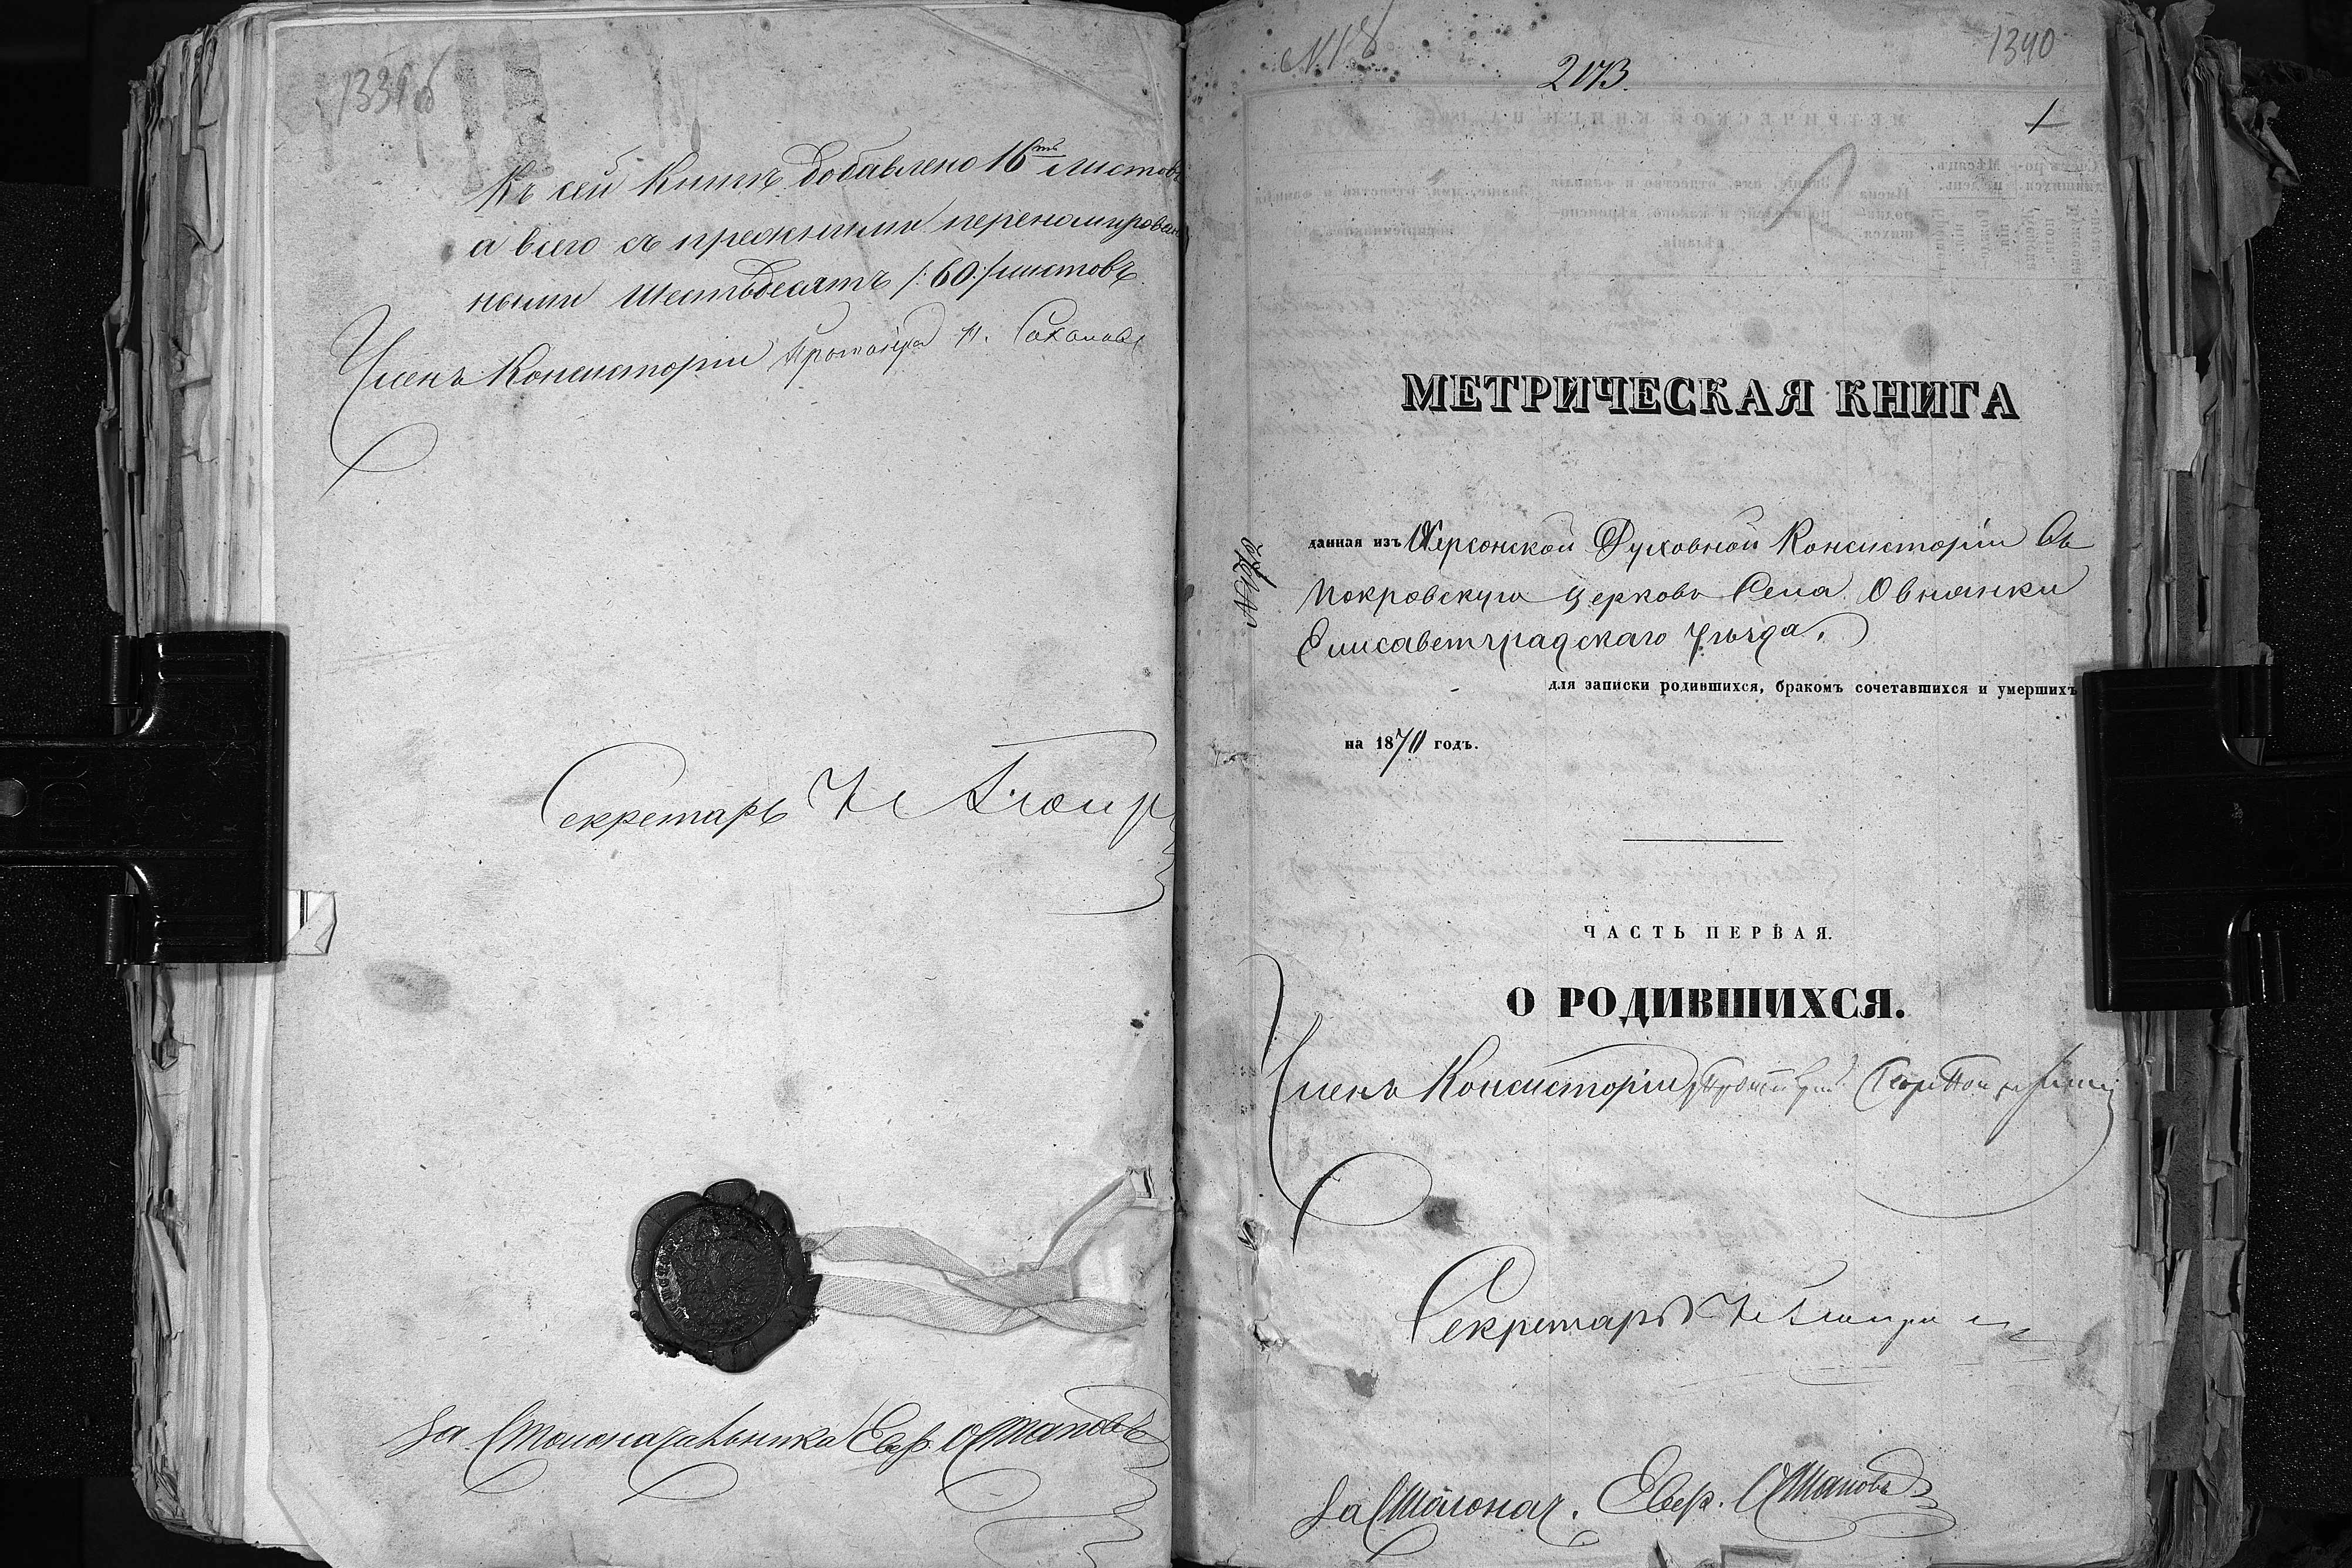 Къ сей Книгѣ добавлено 16ть листовъ
а всего съ прежними перенумирован
ными Шестьдесятъ /:60:/ листовъ.
Членъ Консисторіи Протоіерей
Секретарь
За Столоначальника Евф. Остаповъ
N18
1340
2173.
1
МЕТРИЧЕСКАЯ КНИГА
данная изъ Херсонской Духовной Консисторіи въ
Покровскую церковь Села Овнянки
Елисаветградскаго уѣзда,
для записки родившихся, бракомъ сочетавшихся и умершихъ
на 1870 годъ.
ЧАСТЬ ПЕРВАЯ.
О РОДИВШИХСЯ.
Членъ Консисторіи
Секретарь
За Столонач. Евф. Остаповъ